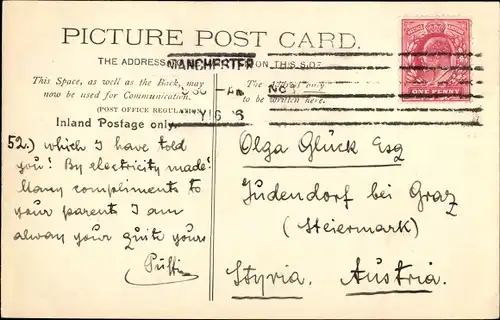 PICTURE POST CARD.
THE ADDRESS ON THIS SIDE
MANCHESTER
This Space, as well as the Back, may
now be used for Communication.
(POST OFFICE REGULATION)
Inland Postage only.
The Address only
to be written here.
ONE PENNY
52.) which I have told
you! By electricity made!
Many compliments to
your parent I am
alway your quite yours
Olga Glück Esq
Judendorf bei Graz
(Steiermark)
Styria. Austria.